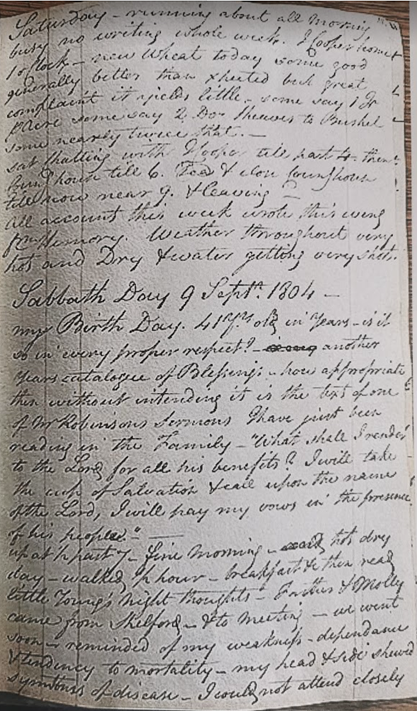 Saturday - running about all morning
busy no writing whole week. J Cooper home
1 o'clock - new Wheat today some good
generally better than expected but great
complaint it yields little - some say 1 Dr
more some say 2 Dr Sheaves to Bushel
some nearly twice that. -
sat chatting with Hooper till past 4. then
house till 6. Tea &
till now near 9. & leaving -
all account this week wrote this eveng
fm Memory. Weather throughout very
hot and Dry & water getting very short.
Sabbath Day 9 Septr. 1804 -
my Birth Day. 41 yrs old in years - is it
so in every proper respect? - another
years catalogue of Blessings - how appropriate
then without intending it is the text of one
of Mr Robinsons Sermons I have just been
reading in the Family - "What shall I render
to the Lord for all his benefits? I will take
the cup of Salvation & call upon the name
of the Lord, I will pay my vows in the presence
of his people." -
up at ½ past 7 - fine morning - hot dry
day - walked ½ hour - breakfast & then read
little Young's Night thoughts - Father & Molly
came from Shelford - & to meeting - we went
soon - reminded of my weakness - dependance
& tendency to mortality - my head & side shewd
symtoms of disease - I could not attend closely